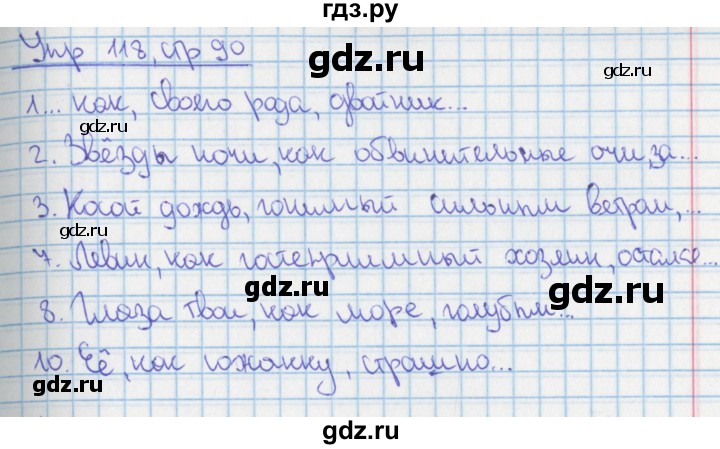 гдз.ру
Упр 118, стр 90
gdz.ru
1... как, своего рода, двойник...
gdz.ru
gdz.ru
2. Звёзды ночи, как обвинительные очи, за...
3. Косой дождь, гонимый сильным ветром, ...
gdz.ru
7. Левин, как гостеприимный хозяин, остался...
gdz.ru
gdz.ru
8. Глаза твои, как море, голубым...
10. Её, как южанку, страшно...
gdz.ru
gdz.ru
gdz.ru